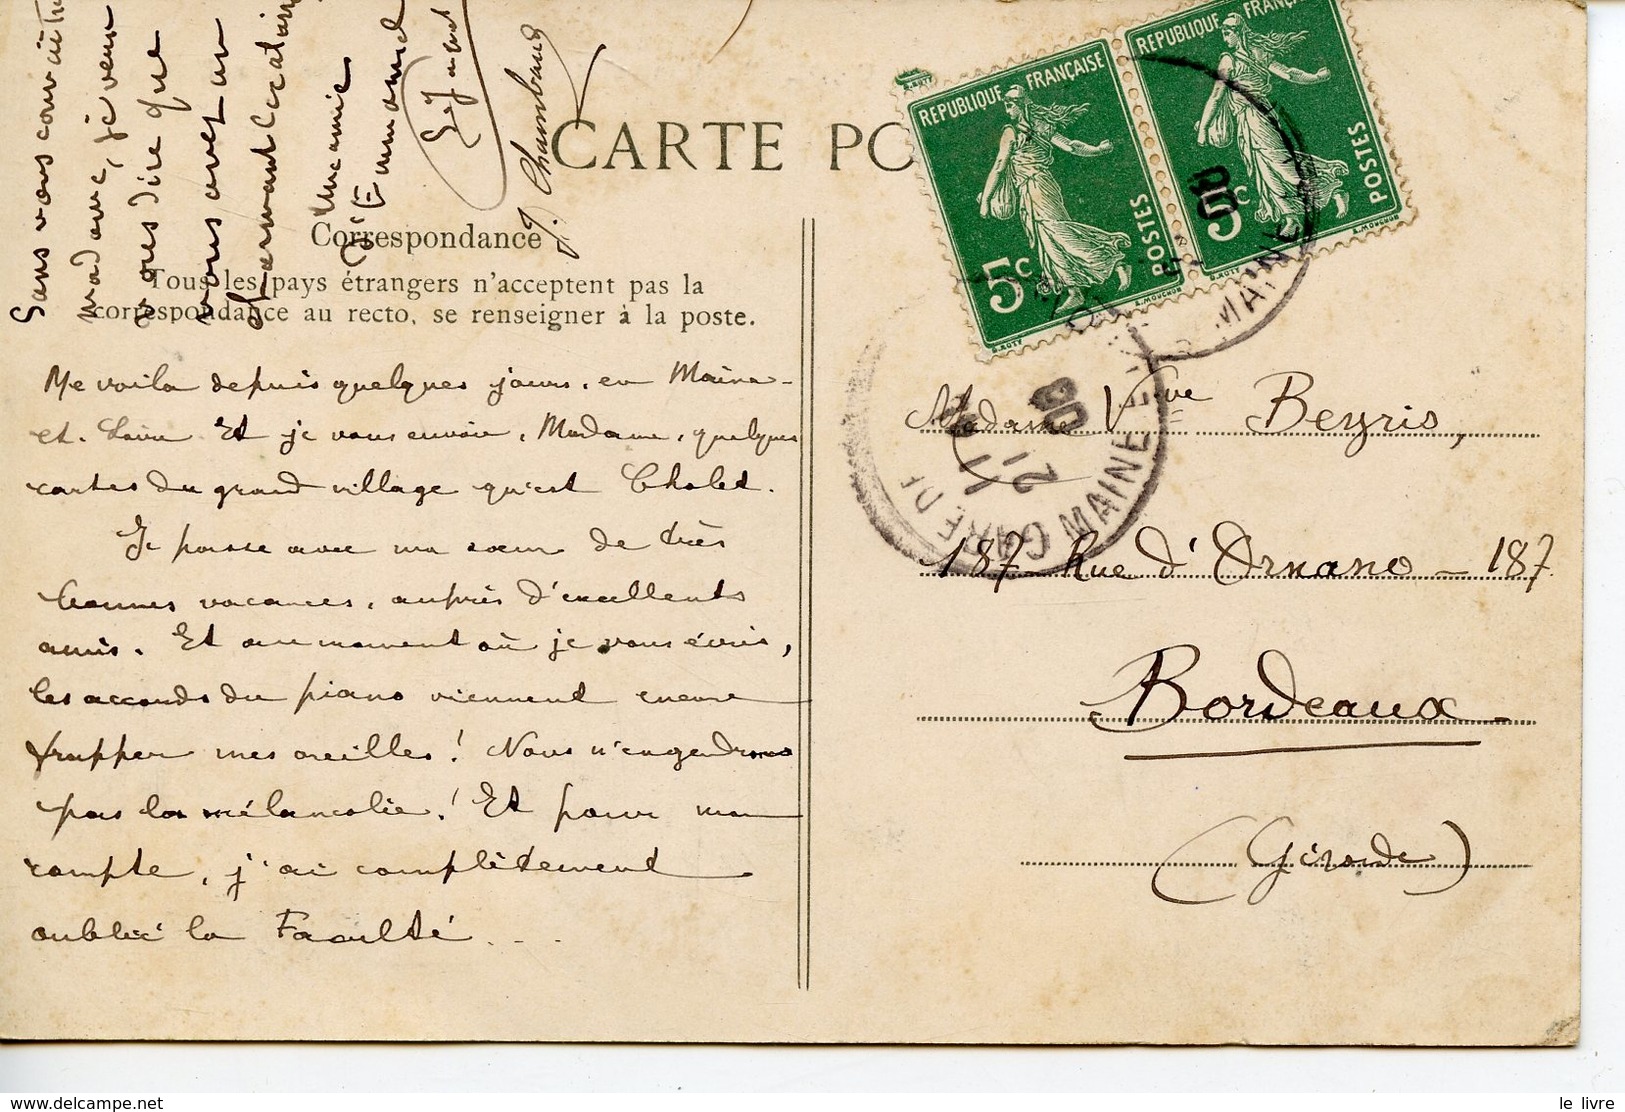 Sans vous connaître
madame, je veux
vous dire que
vous avez un
charmant
Une amie
J. Chambaud
CARTE PO
Correspondance
Tous les pays étrangers n'acceptent pas la
correspondance au recto, se renseigner à la poste.
Me voila depuis quelques jours, en Maine-
et-Loire Et je vous envoie, Madame, quelques
cartes du grand village qu'est Cholet.
Je passe avec ma sœur de très
bonnes vacances, auprès d'excellents
amis. Et au moment où je vous écris,
les accords du piano viennent encore
frapper mes oreilles! Nous n'engendrons
pas la mélancolie! Et pour mon
compte, j'ai complètement
oublié la Faculté...
REPUBLIQUE FRANÇAISE
5c POSTES
REPUBLIQUE FRANÇAISE
5c POSTES
GARE DE
MAINE
21
08
MAINE
08
Madame Vve Beyris,
187 Rue d'Ornano - 187
Bordeaux
(Gironde)
le livre